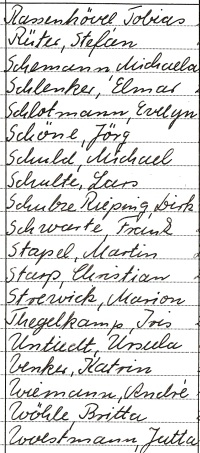 Rassenhövel Tobias
Rüter, Stefan
Schemann, Michaela
Schlenker, Elmar
Schlotmann, Evelyn
Schöne, Jörg
Schuld, Michael
Schulte, Lars
Schulze Rieping, Dirk
Schwarte, Frank
Stapel, Martin
Starp, Christian
Strewick, Marion
Thegelkamp, Iris
Untiedt, Ursula
Venker, Katrin
Wiemann, André
Wöhle, Britta
Woestmann, Jutta